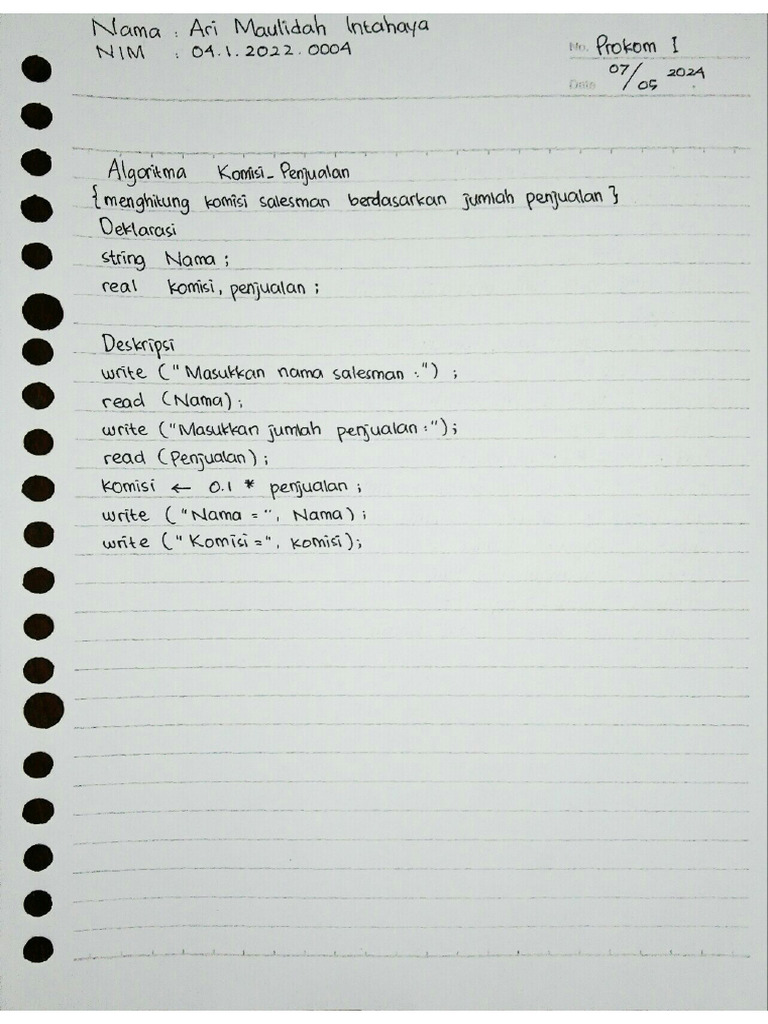 Nama : Ari Maulidah Intahaya
NIM : 04.1.2022.0004
No. Prokom I
Date 07/05 2024
Algoritma Komisi_Penjualan
{menghitung komisi salesman berdasarkan jumlah penjualan}
Deklarasi
string Nama ;
real komisi, penjualan ;
Deskripsi
write ("Masukkan nama salesman :") ;
read (Nama) ;
write ("Masukkan jumlah penjualan :") ;
read (Penjualan) ;
komisi ← 0.1 * penjualan ;
write ("Nama =", Nama) ;
write ("Komisi =", komisi) ;